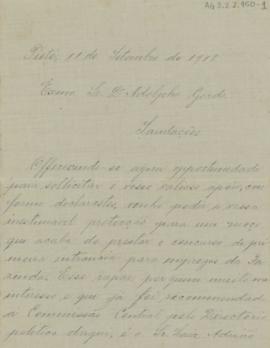 AG 3.2.2.960-1
Tietê, 11 de Setembro de 1918
Exmo. Sr. Dr. Adolpho Gordo
Saudações
Offerecendo-se agora opportunidade
para sollicitar o vosso valioso apoio, con
forme declarastes, venho pedir a vossa
inestimavel protecção para um moço
que acaba de prestar o concurso de pri
meira entrancia para empregos de Fa
zenda. Esse rapaz, por quem muito me
interesso e que já foi recommendado
á Commissão Central pelo Directorio
politico daqui, é o Sr. Luiz Adrião